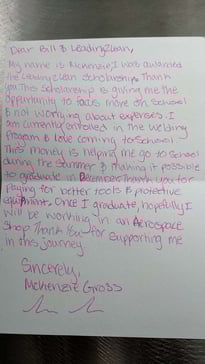 Dear Bill & Leading2Lean,
My name is Mckenzie, I was awarded
the Leading2Lean Scholarship. Thank
you. This scholarship is giving me the
oppurtunity to focus more on school
& not worrying about expenses. I
am currently enrolled in the welding
Program & love coming to school.
This money is helping me go to school
during the summer & making it possible
to graduate in December. Thank you for
Paying for better tools & protective
equipment. Once I graduate, hopefully I
will be working in an Aerospace
Shop. Thank You for supporting me
in this journey.
Sincerely,
McKenzie Gross